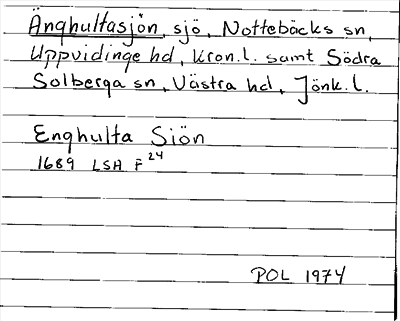 Änghultasjön, sjö, Nottebäcks sn,
Uppvidinge hd, Kron.l. samt Södra
Solberga sn, Västra hd, Jönk.l.
Enghulta Siön
1689 LSA F24
POL 1974